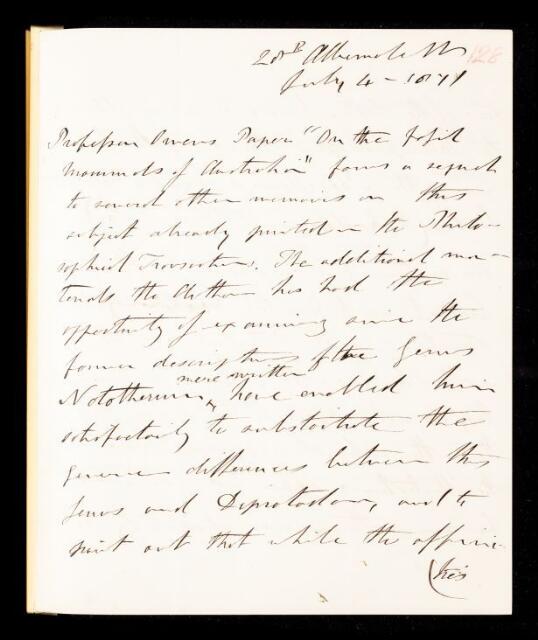 28 B Albemarle St
128
July 4 - 1871
Professor Owens Paper "On the fossil
mammals of Australia" forms a sequel
to several other memoirs on this
subject already printed in the Philo-
sophical Transactions. The additional ma-
terials the Author has had the
opportunity of examining since the
former descriptions of the Genus
were written
Nototherium have enabled him
satisfactorily to substantiate the
Generic differences between this
Genus and Diprotodon, and to
point out that while the affini-
(ties